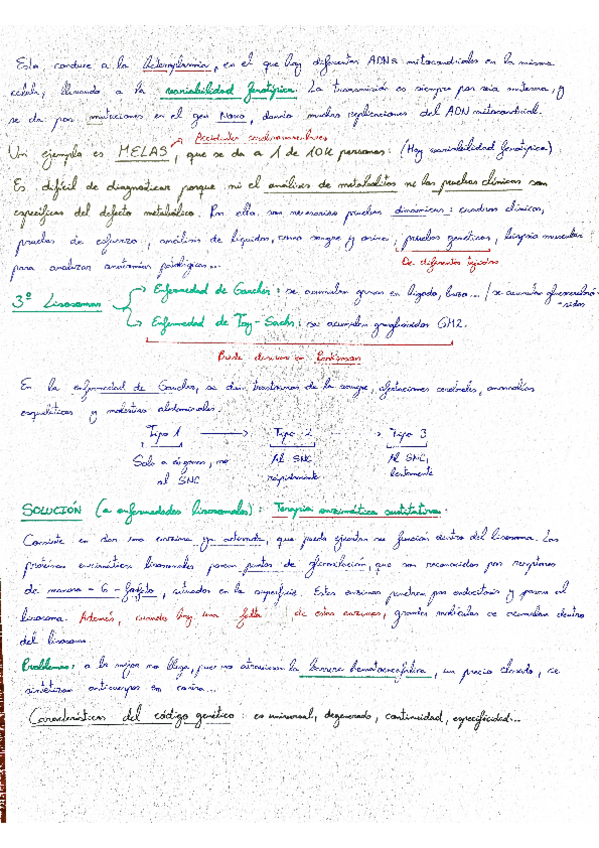 Esto conduce a la heteroplasmia, en el que hay diferentes ADNs mitocondriales en la misma
célula, llevando a la variabilidad fenotípica. La transmisión es siempre por vía materna, y
se da por mutaciones en el gen Novo, dando muchas replicaciones del ADN mitocondrial.
Accidentes cerebrovasculares
Un ejemplo es MELAS, que se da a 1 de 10k personas. (Hay variabilidad fenotípica)
Es difícil de diagnosticar porque ni el análisis de metabolitos ni las pruebas clínicas son
específicas del defecto metabólico. Por ello son necesarias pruebas dinámicas: cuadros clínicos,
pruebas de esfuerzo, análisis de líquidos, como sangre y orina, pruebas genéticas, biopsia muscular
De diferentes tejidos
para analizar anatomías patológicas...
3º Lisosomas
Enfermedad de Gaucher: se acumulan grasas en hígado, bazo... / se acumulan glucocerebrósidos
Enfermedad de Tay-Sachs: se acumulan gangliósidos GM2.
Puede derivar en Parkinson
En la enfermedad de Gaucher, se dan trastornos de la sangre, afectaciones cerebrales, anomalías
esqueléticas y molestias abdominales.
Tipo 1 → Tipo 2 → Tipo 3
Solo a órganos, no al SNC
Al SNC rápidamente
Al SNC, lentamente
SOLUCIÓN (a enfermedades lisosomales): Terapia enzimática sustitutiva.
Consiste en dar una enzima ya, que pueda ejecutar su función dentro del lisosoma. Las
proteínas enzimáticas lisosomales poseen puntos de glicosilación, que son reconocidos por receptores
de manosa-6-fosfato, situados en la superficie. Estas enzimas penetran por endocitosis y pasan al
lisosoma. Además, cuando hay una falta de estas enzimas, grandes moléculas se acumulan dentro
del lisosoma.
Problemas: a lo mejor no llega, pues no atraviesan la barrera hematoencefálica, un precio elevado, se
sintetizan anticuerpos en contra...
Características del código genético: es universal, degenerado, continuidad, especificidad...